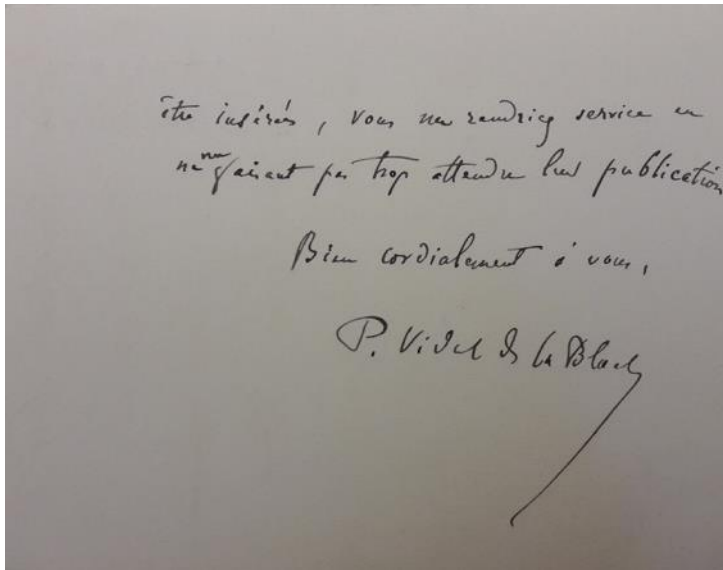 être insérés, vous me rendriez service en
ne me faisant pas trop attendre leur publication
Bien cordialement à vous,
P. Vidal de la Blache